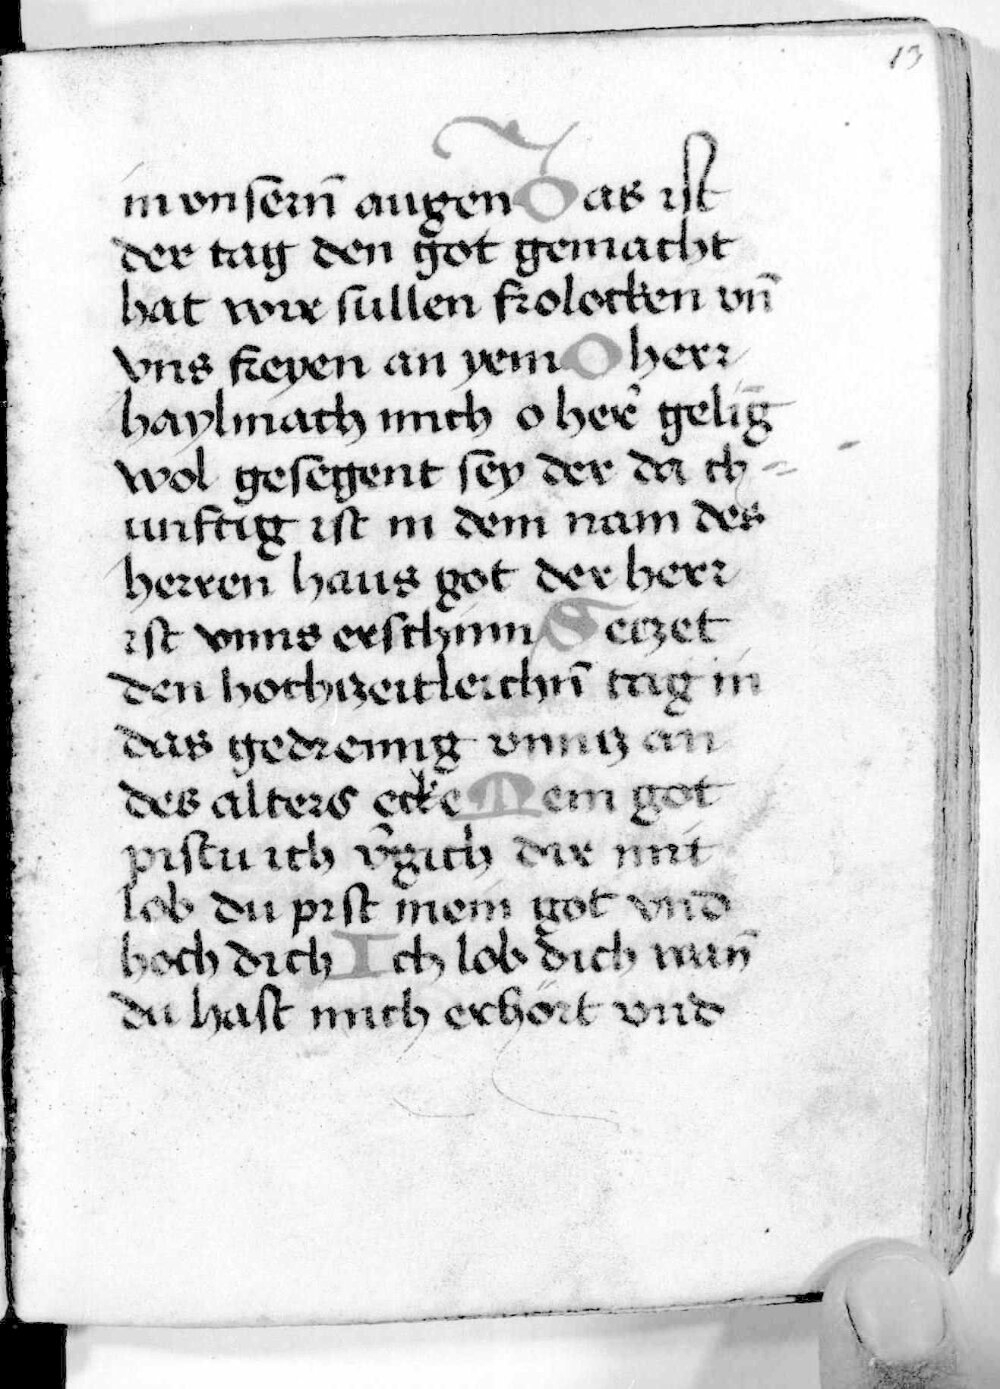 13
in vnsern̄ augen Das ist
der tag den got gemacht
hat wir sullen frolocken vn̄
vns freyen an yem O herr
haylmach mich o her̛ gelīg
wol gesegent sey der da ch=
unftig ist in dem nam des
herren haus got der herr
ist vnns erschinn Seczet
den hochczeitleichn̄ tag in
das gedreung vnntz an
des alters ecke Mein got
pistu ich v̛gich dir mit
lob du pist mein got vnd
hoch dich Ich lob dich wan̄
du hast mich erhört vnd